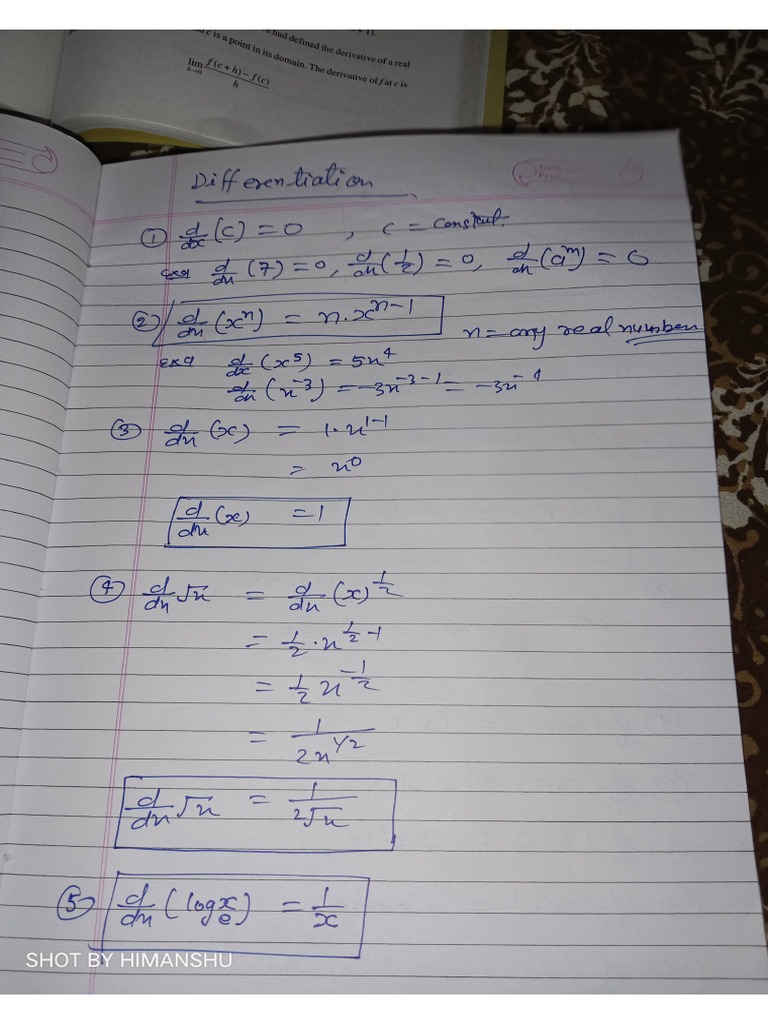 had defined the derivative of a real
c is a point in its domain. The derivative of f at c is
lim h→0 f(c + h) − f(c) / h
Differentiation
① d/dx (c) = 0 , c = constant.
d/dx (7) = 0, d/dx (1/2) = 0, d/dx (a^m) = 0
② d/dx (x^n) = n·x^(n-1)
n = any real number
d/dx (x^5) = 5x^4
d/dx (x^-3) = -3x^(-3-1) = -3x^-4
③ d/dx (x) = 1·x^(1-1)
= x^0
d/dx (x) = 1
④ d/dx √x = d/dx (x)^(1/2)
= 1/2 · x^(1/2 - 1)
= 1/2 x^(-1/2)
= 1 / 2x^(1/2)
d/dx √x = 1 / 2√x
⑤ d/dx (log_e x) = 1/x
SHOT BY HIMANSHU